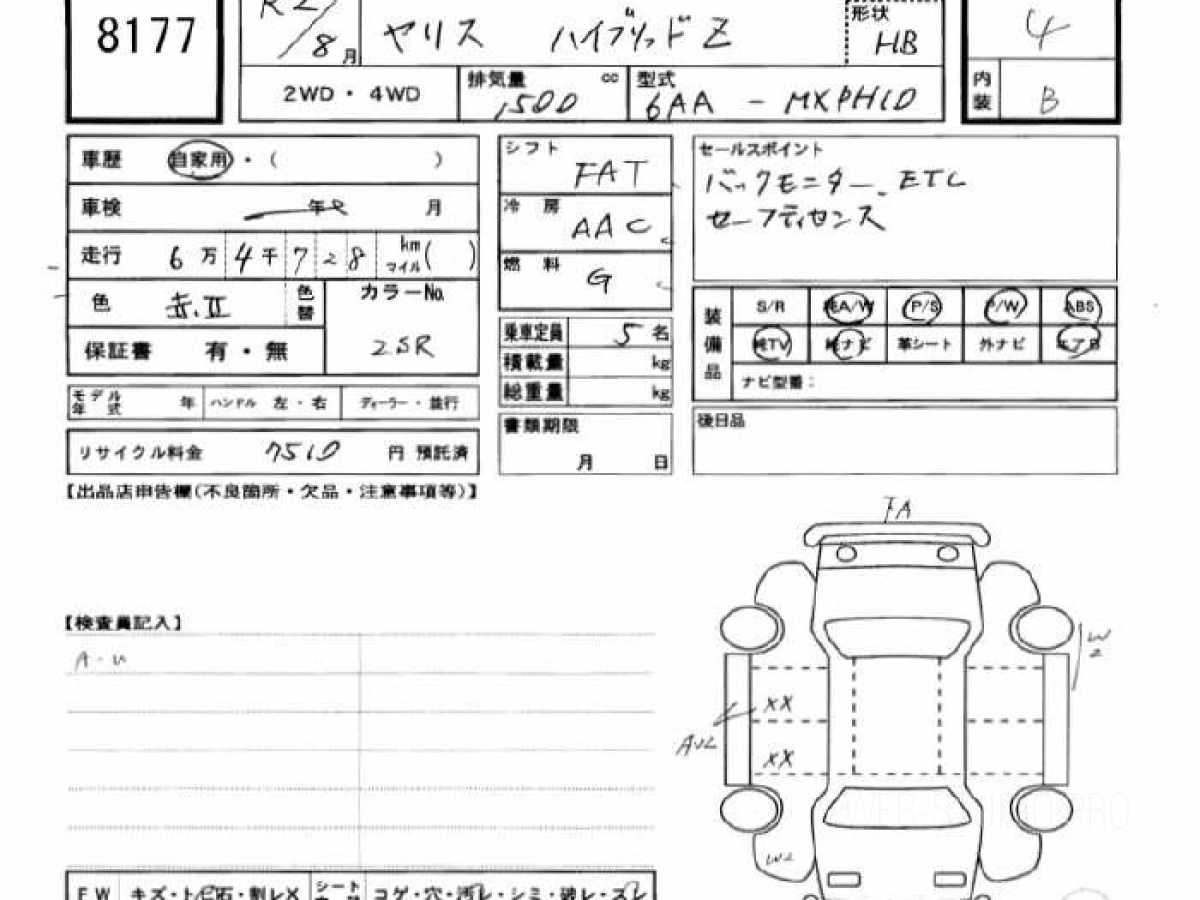 8177
R2/8月
ヤリス ハイブリッドZ
形状 HB
4
2WD・4WD
排気量 1500 cc
型式 6AA - MXPH10
内装 B
車歴 自家用・( )
車検 年 月
走行 6万4千728 km マイル( )
色 赤.II 色替
カラーNo. 2SR
保証書 有・無
モデル年式 年 ハンドル 左・右 ディーラー・並行
リサイクル料金 7510 円 預託済
シフト FAT
冷房 AAC
燃料 G
乗車定員 5名
積載量 kg
総重量 kg
書類期限 月 日
セールスポイント
バックモニター、ETC
セーフティセンス
装備品
S/R 純A/W P/S P/W ABS
純TV 純ナビ 革シート 外ナビ エアB
ナビ型番:
後日品
【出品店申告欄(不良箇所・欠品・注意事項等)】
FA
【検査員記入】
A・U
W2
XX
AU2
XX
W2
FW キズ・トビ石・割レX シート コゲ・穴・汚レ・シミ・破レ・スレ